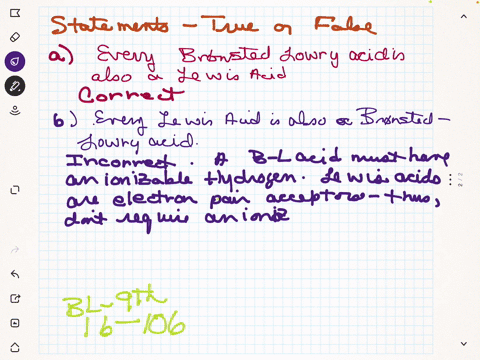 Statements - True or False
a) Every Brønsted Lowry acid is
also a Lewis Acid
Correct
b) Every Lewis Acid is also a Brønsted-
Lowry acid.
Incorrect. A B-L acid must have
an ionizable Hydrogen. Lewis acids
are electron pair acceptors - thus,
don't require an ioniz
BL-9th
16-106